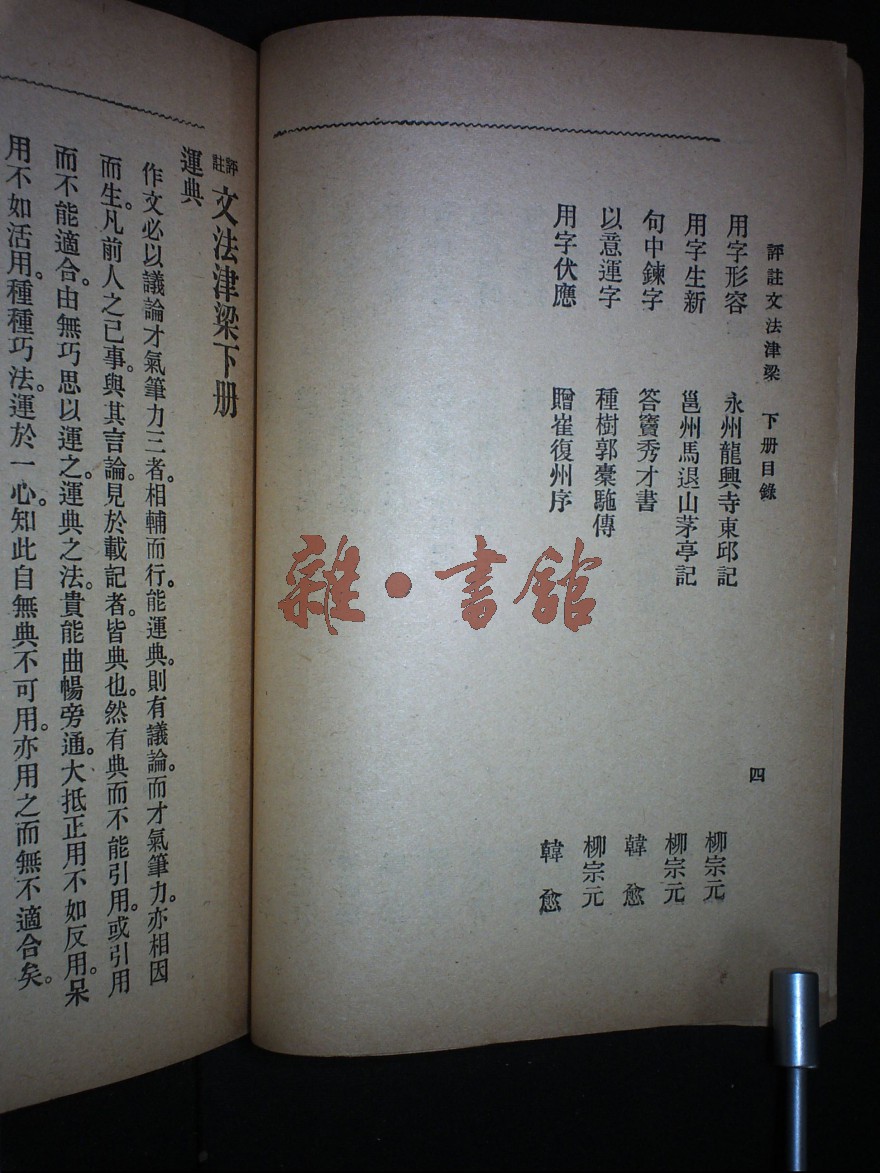 評註文法津梁 下册目錄 四
用字形容 永州龍興寺東邱記 柳宗元
用字生新 邕州馬退山茅亭記 柳宗元
句中鍊字 答竇秀才書 韓愈
以意運字 種樹郭橐駞傳 柳宗元
用字伏應 贈崔復州序 韓愈
雜·書館
評註文法津梁下册
運典
作文必以議論才氣筆力三者。相輔而行。能運典。則有議論。而才氣筆力。亦相因
而生。凡前人之已事。與其言論。見於載記者。皆典也。然有典而不能引用。或引用
而不能適合。由無巧思以運之。運典之法。貴能曲暢旁通。大抵正用不如反用。呆
用不如活用。種種巧法。運於一心。知此自無典不可用。亦用之而無不適合矣。